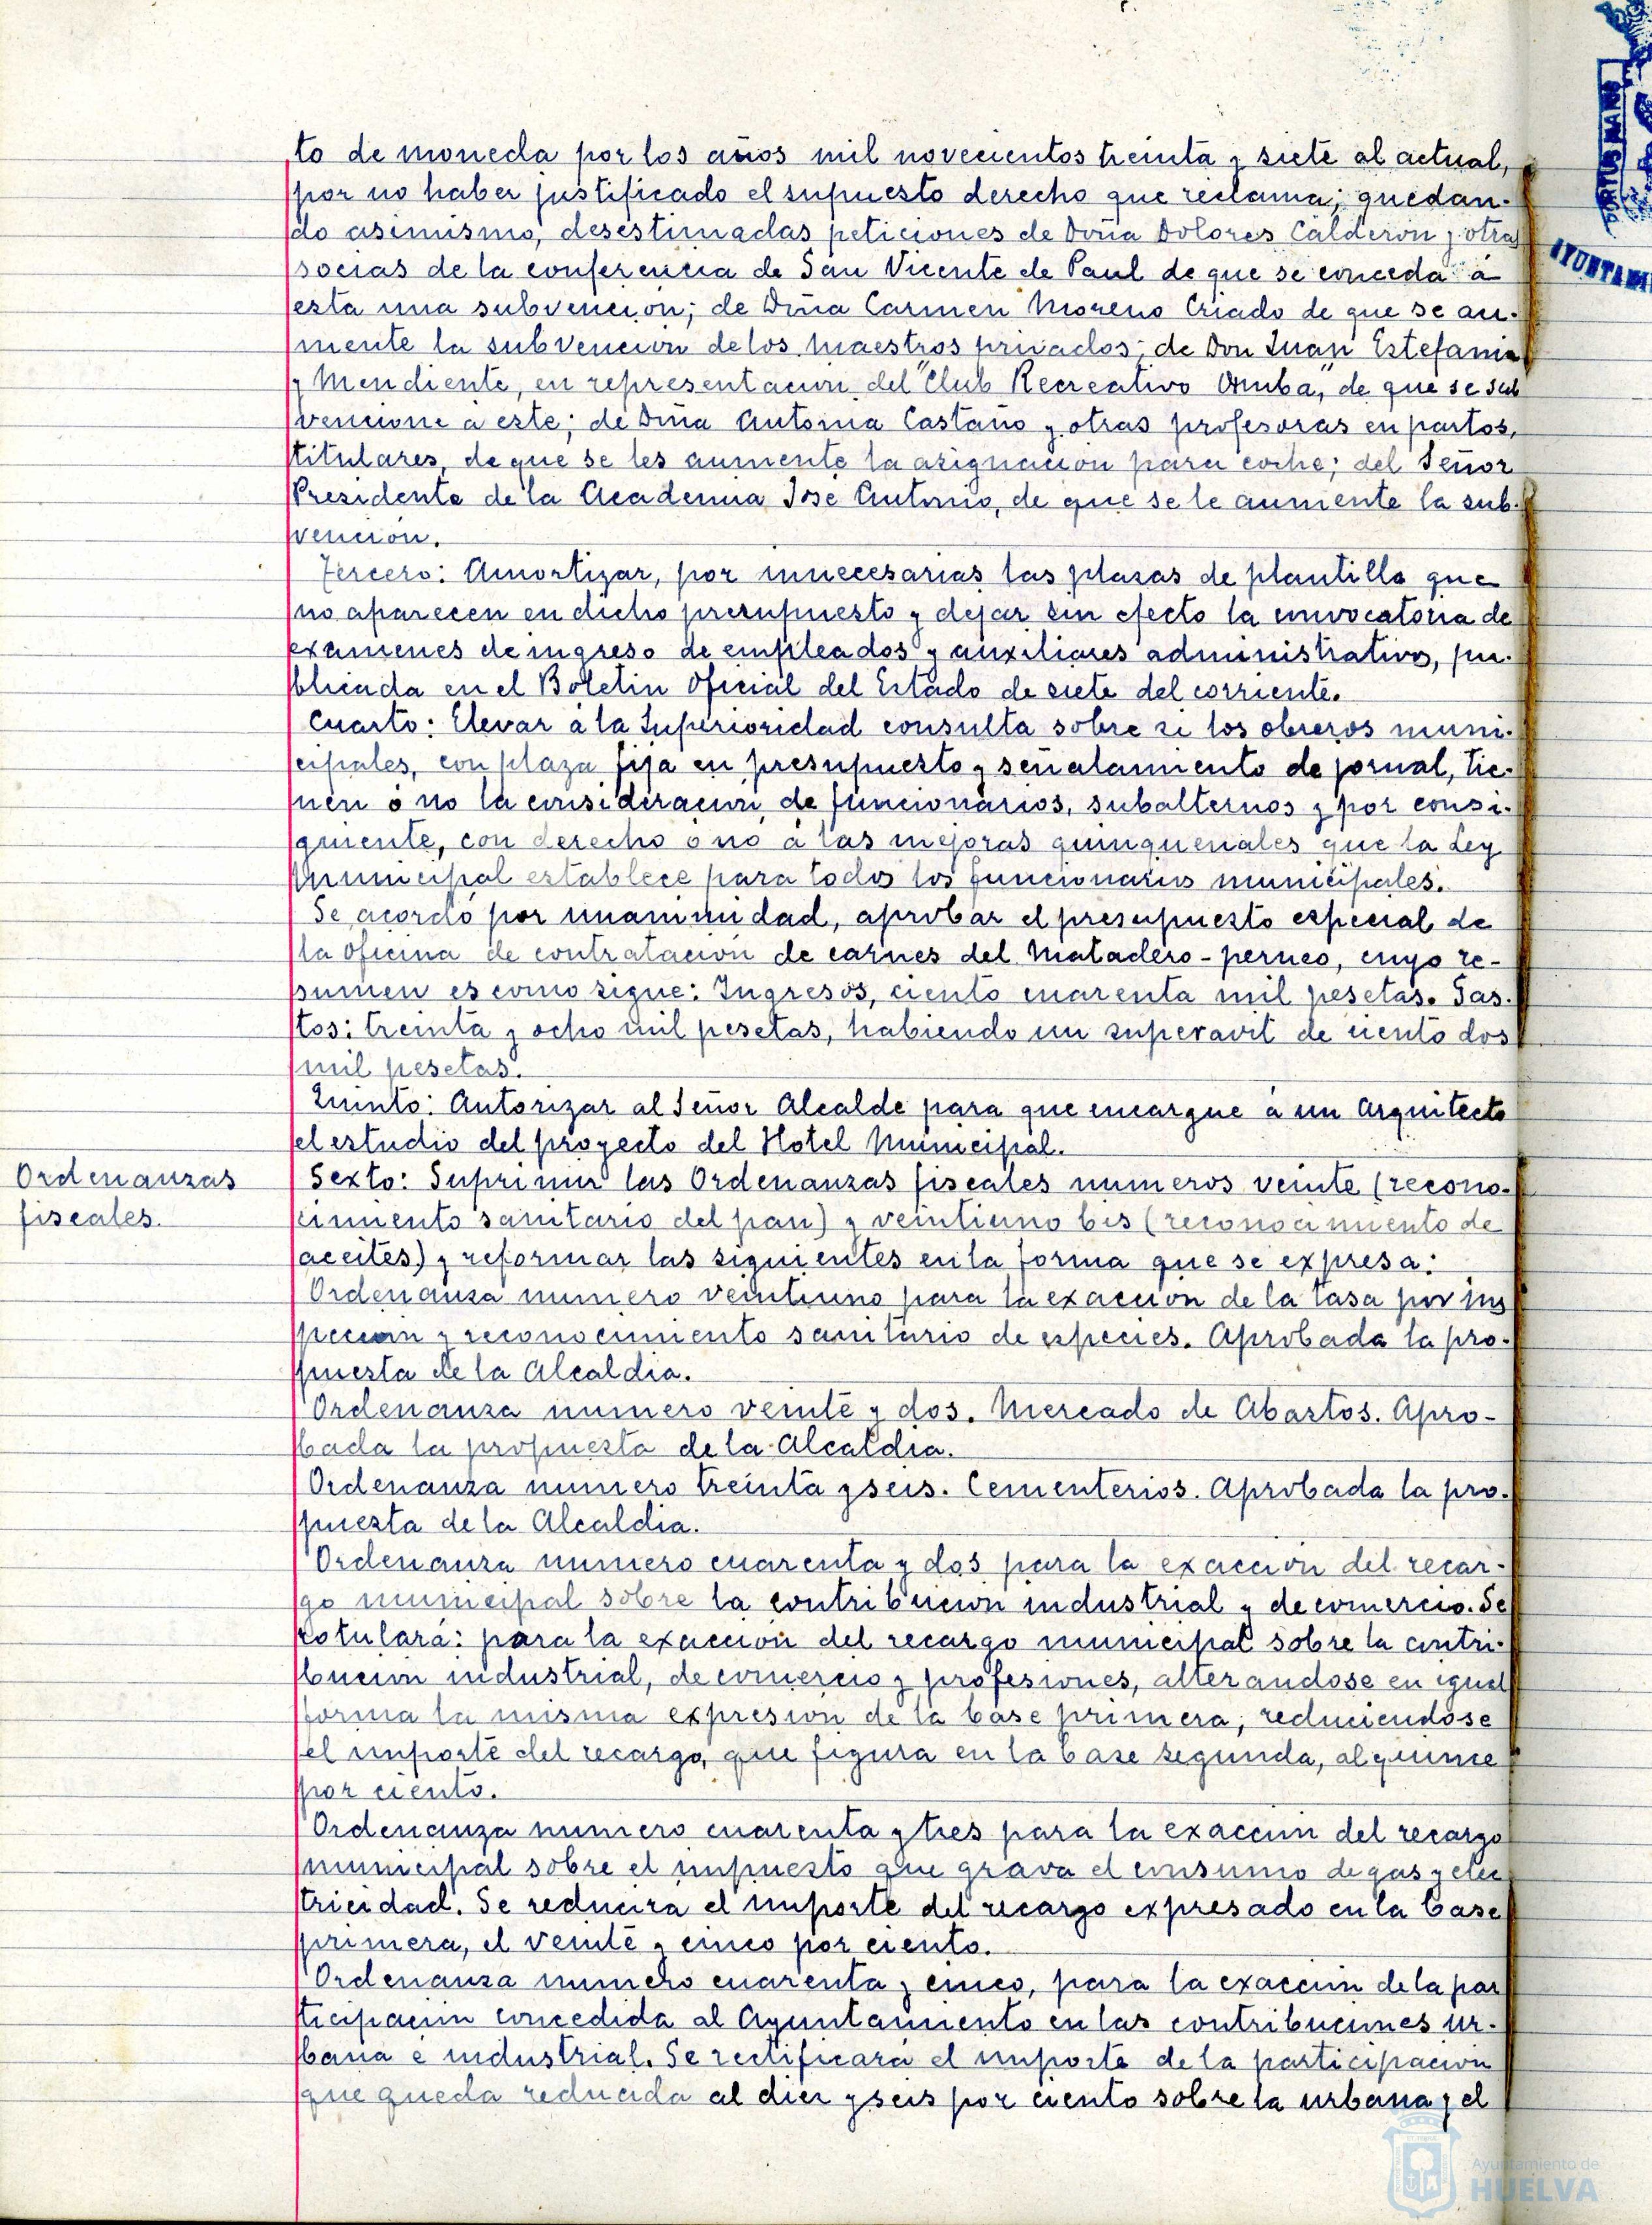 to de moneda por los años mil novecientos treinta y siete al actual,
por no haber justificado el supuesto derecho que reclama; quedan-
do asimismo, desestimadas peticiones de Doña Dolores Calderon y otras
socias de la conferencia de San Vicente de Paul de que se conceda á
esta una subvencion; de Doña Carmen Moreno Criado de que se au-
mente la subvencion de los maestros privados; de Don Juan Estefania
y Mendiente, en representacion del "Club Recreativo Onuba", de que se sub
vencione a este; de Doña Antonia Castaño y otras profesoras en partos,
titulares, de que se les aumente la asignacion para coche; del Señor
Presidente de la Academia Jose Antonio, de que se le aumente la sub-
vencion.
Tercero: Amortizar, por innecesarias las plazas de plantilla que
no aparecen en dicho presupuesto y dejar sin efecto la convocatoria de
examenes de ingreso de empleados y auxiliares administrativos, pu-
blicada en el Boletin Oficial del Estado de siete del corriente.
Cuarto: Elevar á la Superioridad consulta sobre si los obreros muni-
cipales, con plaza fija en presupuesto y señalamiento de jornal, tie-
nen ó no la consideracion de funcionarios, subalternos y por consi-
guiente, con derecho ó no á las mejoras quinquenales que la Ley
Municipal establece para todos los funcionarios municipales.
Se acordó por unanimidad, aprobar el presupuesto especial de
la oficina de contratacion de carnes del Matadero-perneo, cuyo re-
sumen es como sigue: Ingresos, ciento cuarenta mil pesetas. Gas-
tos: treinta y ocho mil pesetas, habiendo un superavit de ciento dos
mil pesetas.
Quinto: Autorizar al Señor Alcalde para que encargue á un Arquitecto
el estudio del proyecto del Hotel Municipal.
Ordenanzas
fiscales.
Sexto: Suprimir las Ordenanzas fiscales numeros veinte (recono-
cimiento sanitario del pan) y veintiuno bis (reconocimiento de
aceites) y reformar las siguientes en la forma que se expresa:
Ordenanza numero veintiuno para la exaccion de la tasa por ins
peccion y reconocimiento sanitario de especies. Aprobada la pro-
puesta de la Alcaldia.
Ordenanza numero veinte y dos. Mercado de Abastos. Apro-
bada la propuesta de la Alcaldia.
Ordenanza numero treinta y seis. Cementerios. Aprobada la pro-
puesta de la Alcaldia.
Ordenanza numero cuarenta y dos para la exaccion del recar-
go municipal sobre la contribucion industrial y de comercio. Se
rotulará: para la exaccion del recargo municipal sobre la contri-
bucion industrial, de comercio y profesiones, alterandose en igual
forma la misma expresion de la base primera; reduciendose
el importe del recargo, que figura en la base segunda, al quince
por ciento.
Ordenanza numero cuarenta y tres para la exaccion del recargo
municipal sobre el impuesto que grava el consumo de gas y elec
tricidad. Se reducira el importe del recargo expresado en la base
primera, el veinte y cinco por ciento.
Ordenanza numero cuarenta y cinco, para la exaccion de la par
ticipacion concedida al Ayuntamiento en las contribuciones ur-
bana e industrial. Se rectificará el importe de la participacion
que queda reducida al diez y seis por ciento sobre la urbana y el
Ayuntamiento de
HUELVA